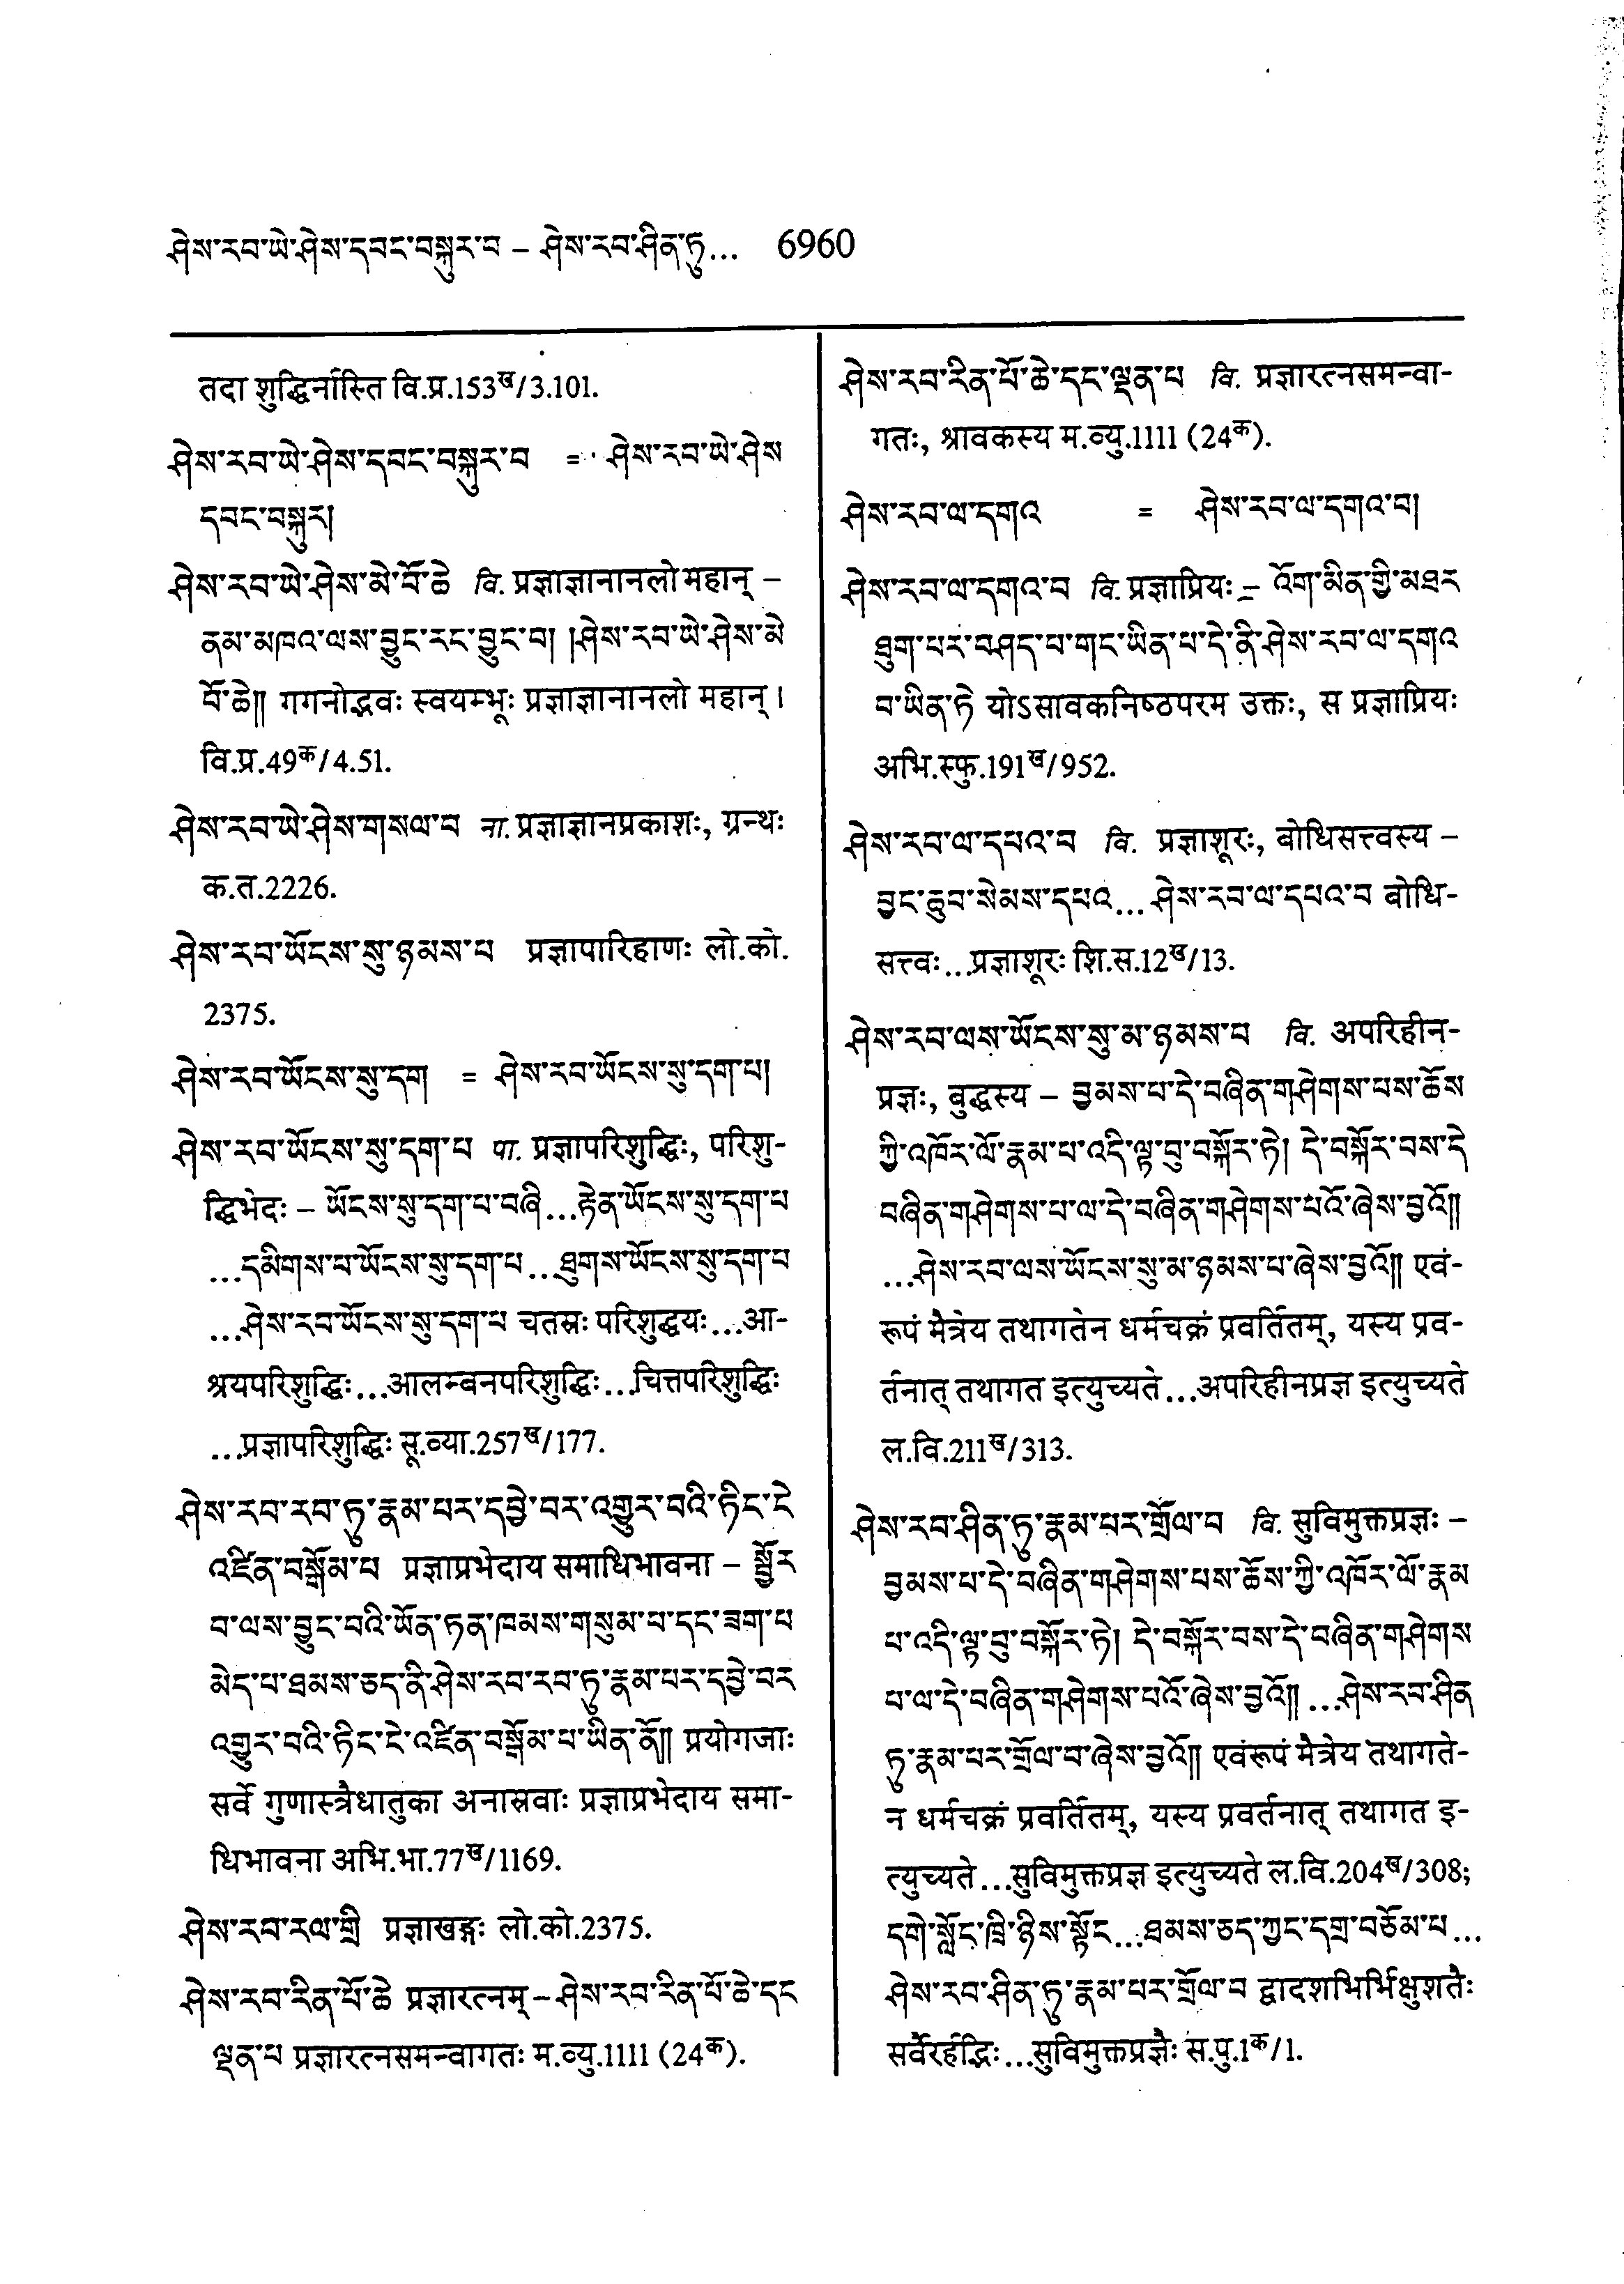 ཤེས་རབ་ཡེ་ཤེས་དབང་བསྐུར་བ – ཤེས་རབ་ཤིན་ཏུ... 6960
तदा शुद्धिर्नास्ति वि.प्र.153ख/3.101.
ཤེས་རབ་ཡེ་ཤེས་དབང་བསྐུར་བ = ཤེས་རབ་ཡེ་ཤེས
དབང་བསྐུར།
ཤེས་རབ་ཡེ་ཤེས་མེ་བོ་ཆེ वि. प्रज्ञाज्ञानानलो महान् –
ནམ་མཁའ་ལས་བྱུང་རང་བྱུང་བ། །ཤེས་རབ་ཡེ་ཤེས་མེ
བོ་ཆེ༎ गगनोद्भवः स्वयम्भूः प्रज्ञाज्ञानानलो महान् ।
वि.प्र.49क/4.51.
ཤེས་རབ་ཡེ་ཤེས་གསལ་བ ना. प्रज्ञाज्ञानप्रकाशः, ग्रन्थः
क.त.2226.
ཤེས་རབ་ཡོངས་སུ་ཉམས་པ प्रज्ञापारिहाणः लो.को.
2375.
ཤེས་རབ་ཡོངས་སུ་དག = ཤེས་རབ་ཡོངས་སུ་དག་པ།
ཤེས་རབ་ཡོངས་སུ་དག་པ पा. प्रज्ञापरिशुद्धिः, परिशु-
द्धिभेदः – ཡོངས་སུ་དག་པ་བཞི...རྟེན་ཡོངས་སུ་དག་པ
...དམིགས་པ་ཡོངས་སུ་དག་པ...ཐུགས་ཡོངས་སུ་དག་པ
...ཤེས་རབ་ཡོངས་སུ་དག་པ चतस्रः परिशुद्धयः...आ-
श्रयपरिशुद्धिः...आलम्बनपरिशुद्धिः...चित्तपरिशुद्धिः
...प्रज्ञापरिशुद्धिः सू.व्या.257ख/177.
ཤེས་རབ་རབ་ཏུ་རྣམ་པར་དབྱེ་བར་འགྱུར་བའི་ཏིང་ངེ
འཛིན་བསྒོམ་པ प्रज्ञाप्रभेदाय समाधिभावना – སྦྱོར
བ་ལས་བྱུང་བའི་ཡོན་ཏན་ཁམས་གསུམ་པ་དང་ཟག་པ
མེད་པ་ཐམས་ཅད་ནི་ཤེས་རབ་རབ་ཏུ་རྣམ་པར་དབྱེ་བར
འགྱུར་བའི་ཏིང་ངེ་འཛིན་བསྒོམ་པ་ཡིན་ནོ༎ प्रयोगजाः
सर्वे गुणास्त्रैधातुका अनास्रवाः प्रज्ञाप्रभेदाय समा-
धिभावना अभि.भा.77ख/1169.
ཤེས་རབ་རལ་གྲི प्रज्ञाखङ्गः लो.को.2375.
ཤེས་རབ་རིན་པོ་ཆེ प्रज्ञारत्नम् – ཤེས་རབ་རིན་པོ་ཆེ་དང
ལྡན་པ प्रज्ञारत्नसमन्वागतः म.व्यु.1111 (24क).
ཤེས་རབ་རིན་པོ་ཆེ་དང་ལྡན་པ वि. प्रज्ञारत्नसमन्वा-
गतः, श्रावकस्य म.व्यु.1111 (24क).
ཤེས་རབ་ལ་དགའ = ཤེས་རབ་ལ་དགའ་བ།
ཤེས་རབ་ལ་དགའ་བ वि. प्रज्ञाप्रियः – འོག་མིན་གྱི་མཐར
ཐུག་པར་བཤད་པ་གང་ཡིན་པ་དེ་ནི་ཤེས་རབ་ལ་དགའ
བ་ཡིན་ཏེ योऽसावकनिष्ठपरम उक्तः, स प्रज्ञाप्रियः
अभि.स्फु.191ख/952.
ཤེས་རབ་ལ་དཔའ་བ वि. प्रज्ञाशूरः, बोधिसत्त्वस्य –
བྱང་ཆུབ་སེམས་དཔའ...ཤེས་རབ་ལ་དཔའ་བ बोधि-
सत्त्वः...प्रज्ञाशूरः शि.स.12ख/13.
ཤེས་རབ་ལས་ཡོངས་སུ་མ་ཉམས་པ वि. अपरिहीन-
प्रज्ञः, बुद्धस्य – བྱམས་པ་དེ་བཞིན་གཤེགས་པས་ཆོས
ཀྱི་འཁོར་ལོ་རྣམ་པ་འདི་ལྟ་བུ་བསྐོར་ཏེ། དེ་བསྐོར་བས་དེ
བཞིན་གཤེགས་པ་ལ་དེ་བཞིན་གཤེགས་པའོ་ཞེས་བྱའོ༎
...ཤེས་རབ་ལས་ཡོངས་སུ་མ་ཉམས་པ་ཞེས་བྱའོ༎ एवं-
रूपं मैत्रेय तथागतेन धर्मचक्रं प्रवर्तितम्, यस्य प्रव-
र्तनात् तथागत इत्युच्यते...अपरिहीनप्रज्ञ इत्युच्यते
ल.वि.211ख/313.
ཤེས་རབ་ཤིན་ཏུ་རྣམ་པར་གྲོལ་བ वि. सुविमुक्तप्रज्ञः –
བྱམས་པ་དེ་བཞིན་གཤེགས་པས་ཆོས་ཀྱི་འཁོར་ལོ་རྣམ
པ་འདི་ལྟ་བུ་བསྐོར་ཏེ། དེ་བསྐོར་བས་དེ་བཞིན་གཤེགས
པ་ལ་དེ་བཞིན་གཤེགས་པའོ་ཞེས་བྱའོ༎ ...ཤེས་རབ་ཤིན
ཏུ་རྣམ་པར་གྲོལ་བ་ཞེས་བྱའོ༎ एवंरूपं मैत्रेय तथागते-
न धर्मचक्रं प्रवर्तितम्, यस्य प्रवर्तनात् तथागत इ-
त्युच्यते...सुविमुक्तप्रज्ञ इत्युच्यते ल.वि.204ख/308;
དགེ་སློང་ཁྲི་ཉིས་སྟོང...ཐམས་ཅད་ཀྱང་དགྲ་བཅོམ་པ...
ཤེས་རབ་ཤིན་ཏུ་རྣམ་པར་གྲོལ་བ द्वादशभिर्भिक्षुशतैः
सर्वैरर्हद्भिः...सुविमुक्तप्रज्ञैः स.पु.1क/1.